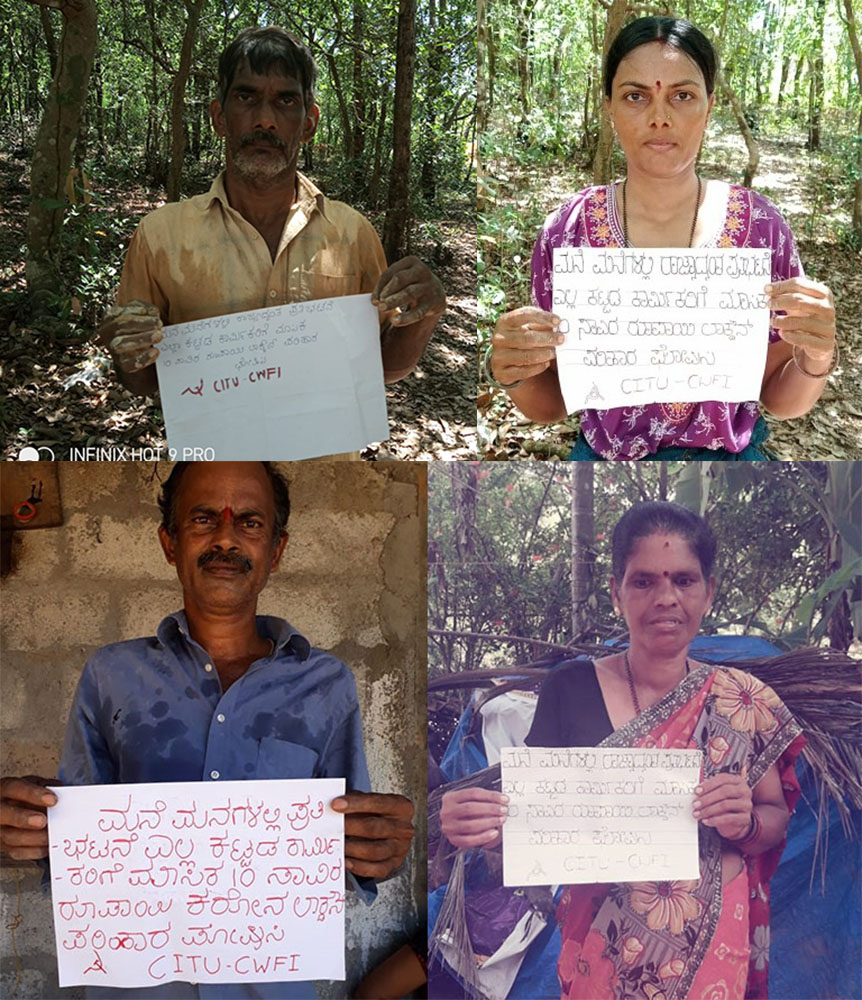 ಮನೆ ಮನೆಗಳಲ್ಲಿ ರಾಜ್ಯಾದ್ಯಂತ ಪ್ರತಿಭಟನೆ
ಎಲ್ಲಾ ಕಟ್ಟಡ ಕಾರ್ಮಿಕರಿಗೆ ಮಾಸಿಕ
10 ಸಾವಿರ ರೂಪಾಯಿ ಲಾಕ್ಡೌನ್ ಪರಿಹಾರ
ಘೋಷಿಸಿ
CITU-CWFI
INFINIX HOT 9 PRO
ಮನೆ ಮನೆಗಳಲ್ಲಿ ರಾಜ್ಯಾದ್ಯಂತ
ಎಲ್ಲ ಕಟ್ಟಡ ಕಾರ್ಮಿಕರಿಗೆ ಮಾಸಿಕ
10 ಸಾವಿರ ರೂಪಾಯಿ ಲಾಕ್ಡೌನ್
ಪರಿಹಾರ ಘೋಷಿಸಿ
CITU-CWFI
ಮನೆ ಮನಗಳಲ್ಲಿ ಪ್ರತಿ
-ಭಟನೆ ಎಲ್ಲ ಕಟ್ಟಡ ಕಾರ್ಮಿ
-ಕರಿಗೆ ಮಾಸಿಕ 10 ಸಾವಿರ
ರೂಪಾಯಿ ಕರೋನ
ಪರಿಹಾರ ಘೋಷಿಸಿ
CITU-CWFI
ಮನೆ ಮನೆಗಳಲ್ಲಿ ರಾಜ್ಯಾದ್ಯಂತ
ಎಲ್ಲ ಕಟ್ಟಡ ಕಾರ್ಮಿಕರಿಗೆ ಮಾಸಿಕ
10 ಸಾವಿರ ರೂಪಾಯಿ ಲಾಕ್ಡೌನ್
ಪರಿಹಾರ ಘೋಷಿಸಿ
CITU-CWFI